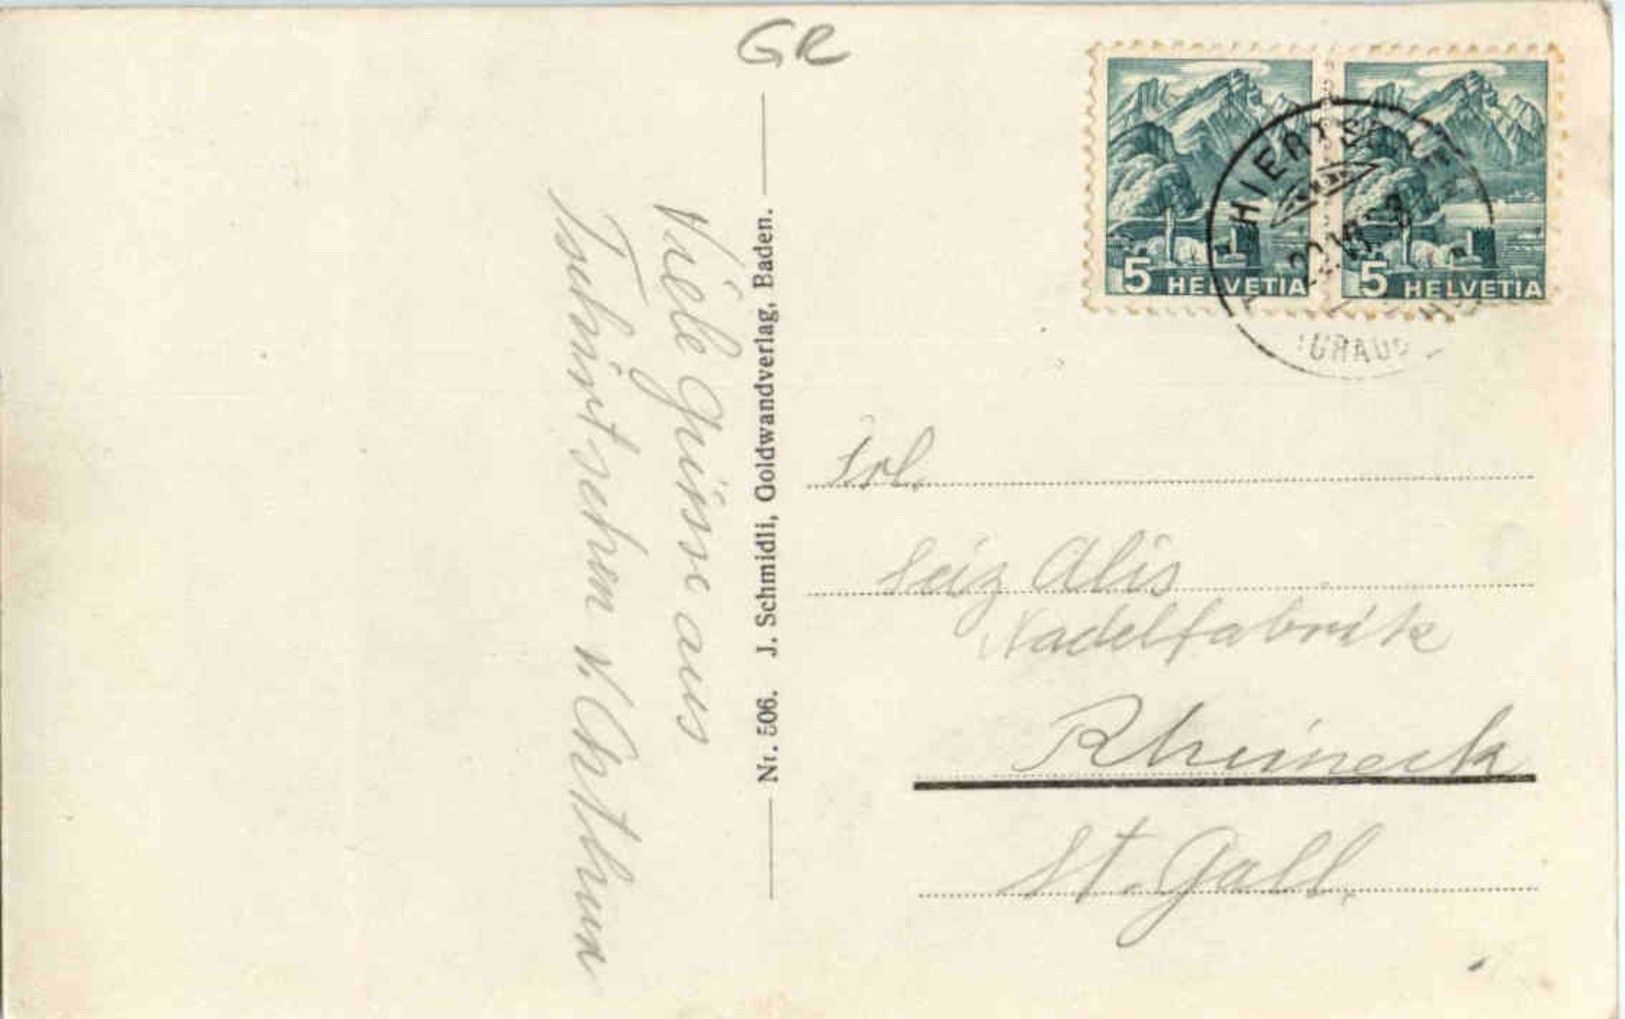 GR
5 HELVETIA
5 HELVETIA
Viele Grüsse aus
Tschiertschen
Nr. 506. J. Schmidli, Goldwandverlag, Baden.
Frl.
Seiz Alis
Nadelfabrik
Rheineck
St. Gall.